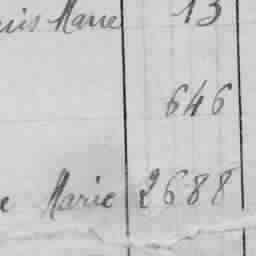 Marie 13
646
Marie 2688